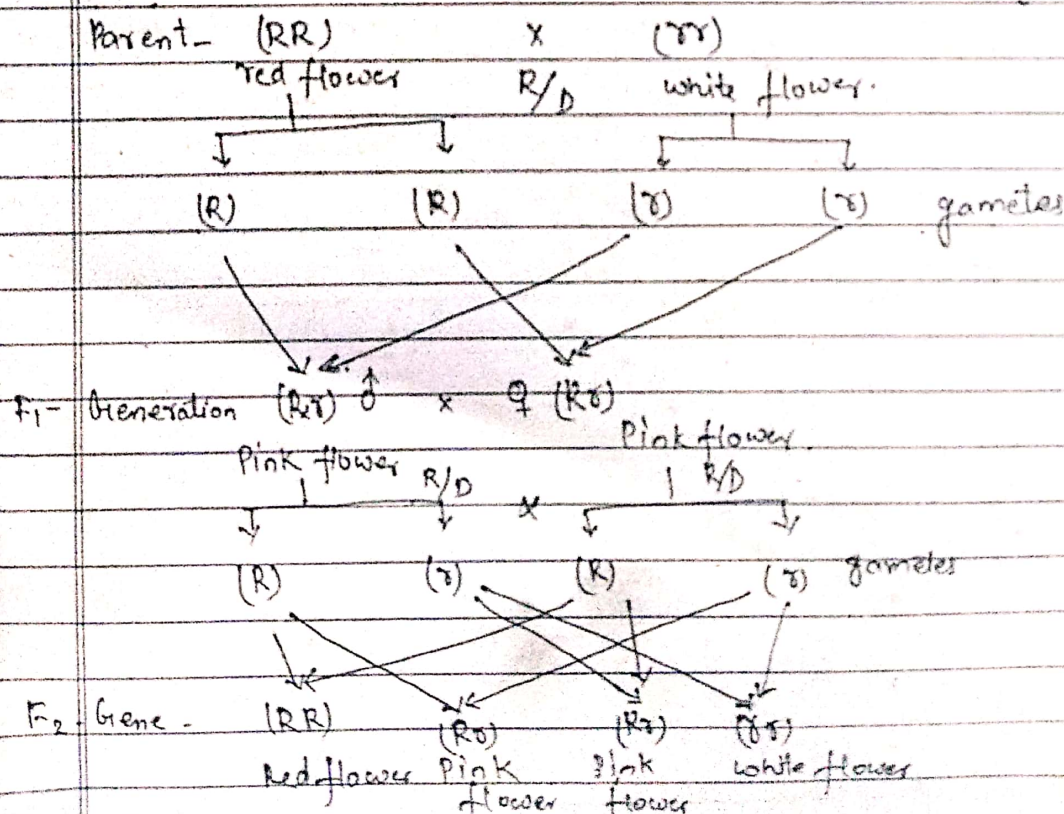 Parent- (RR) x (rr)
red flower R/D white flower.
(R) (R) (r) (r) gametes
F1- Generation (Rr) ♂ x ♀ (Rr)
Pink flower R/D Pink flower. R/D
x
(R) (r) (R) (r) gametes
F2. Gene - (RR) (Rr) (Rr) (rr)
Red flower Pink Pink white flower
flower flower